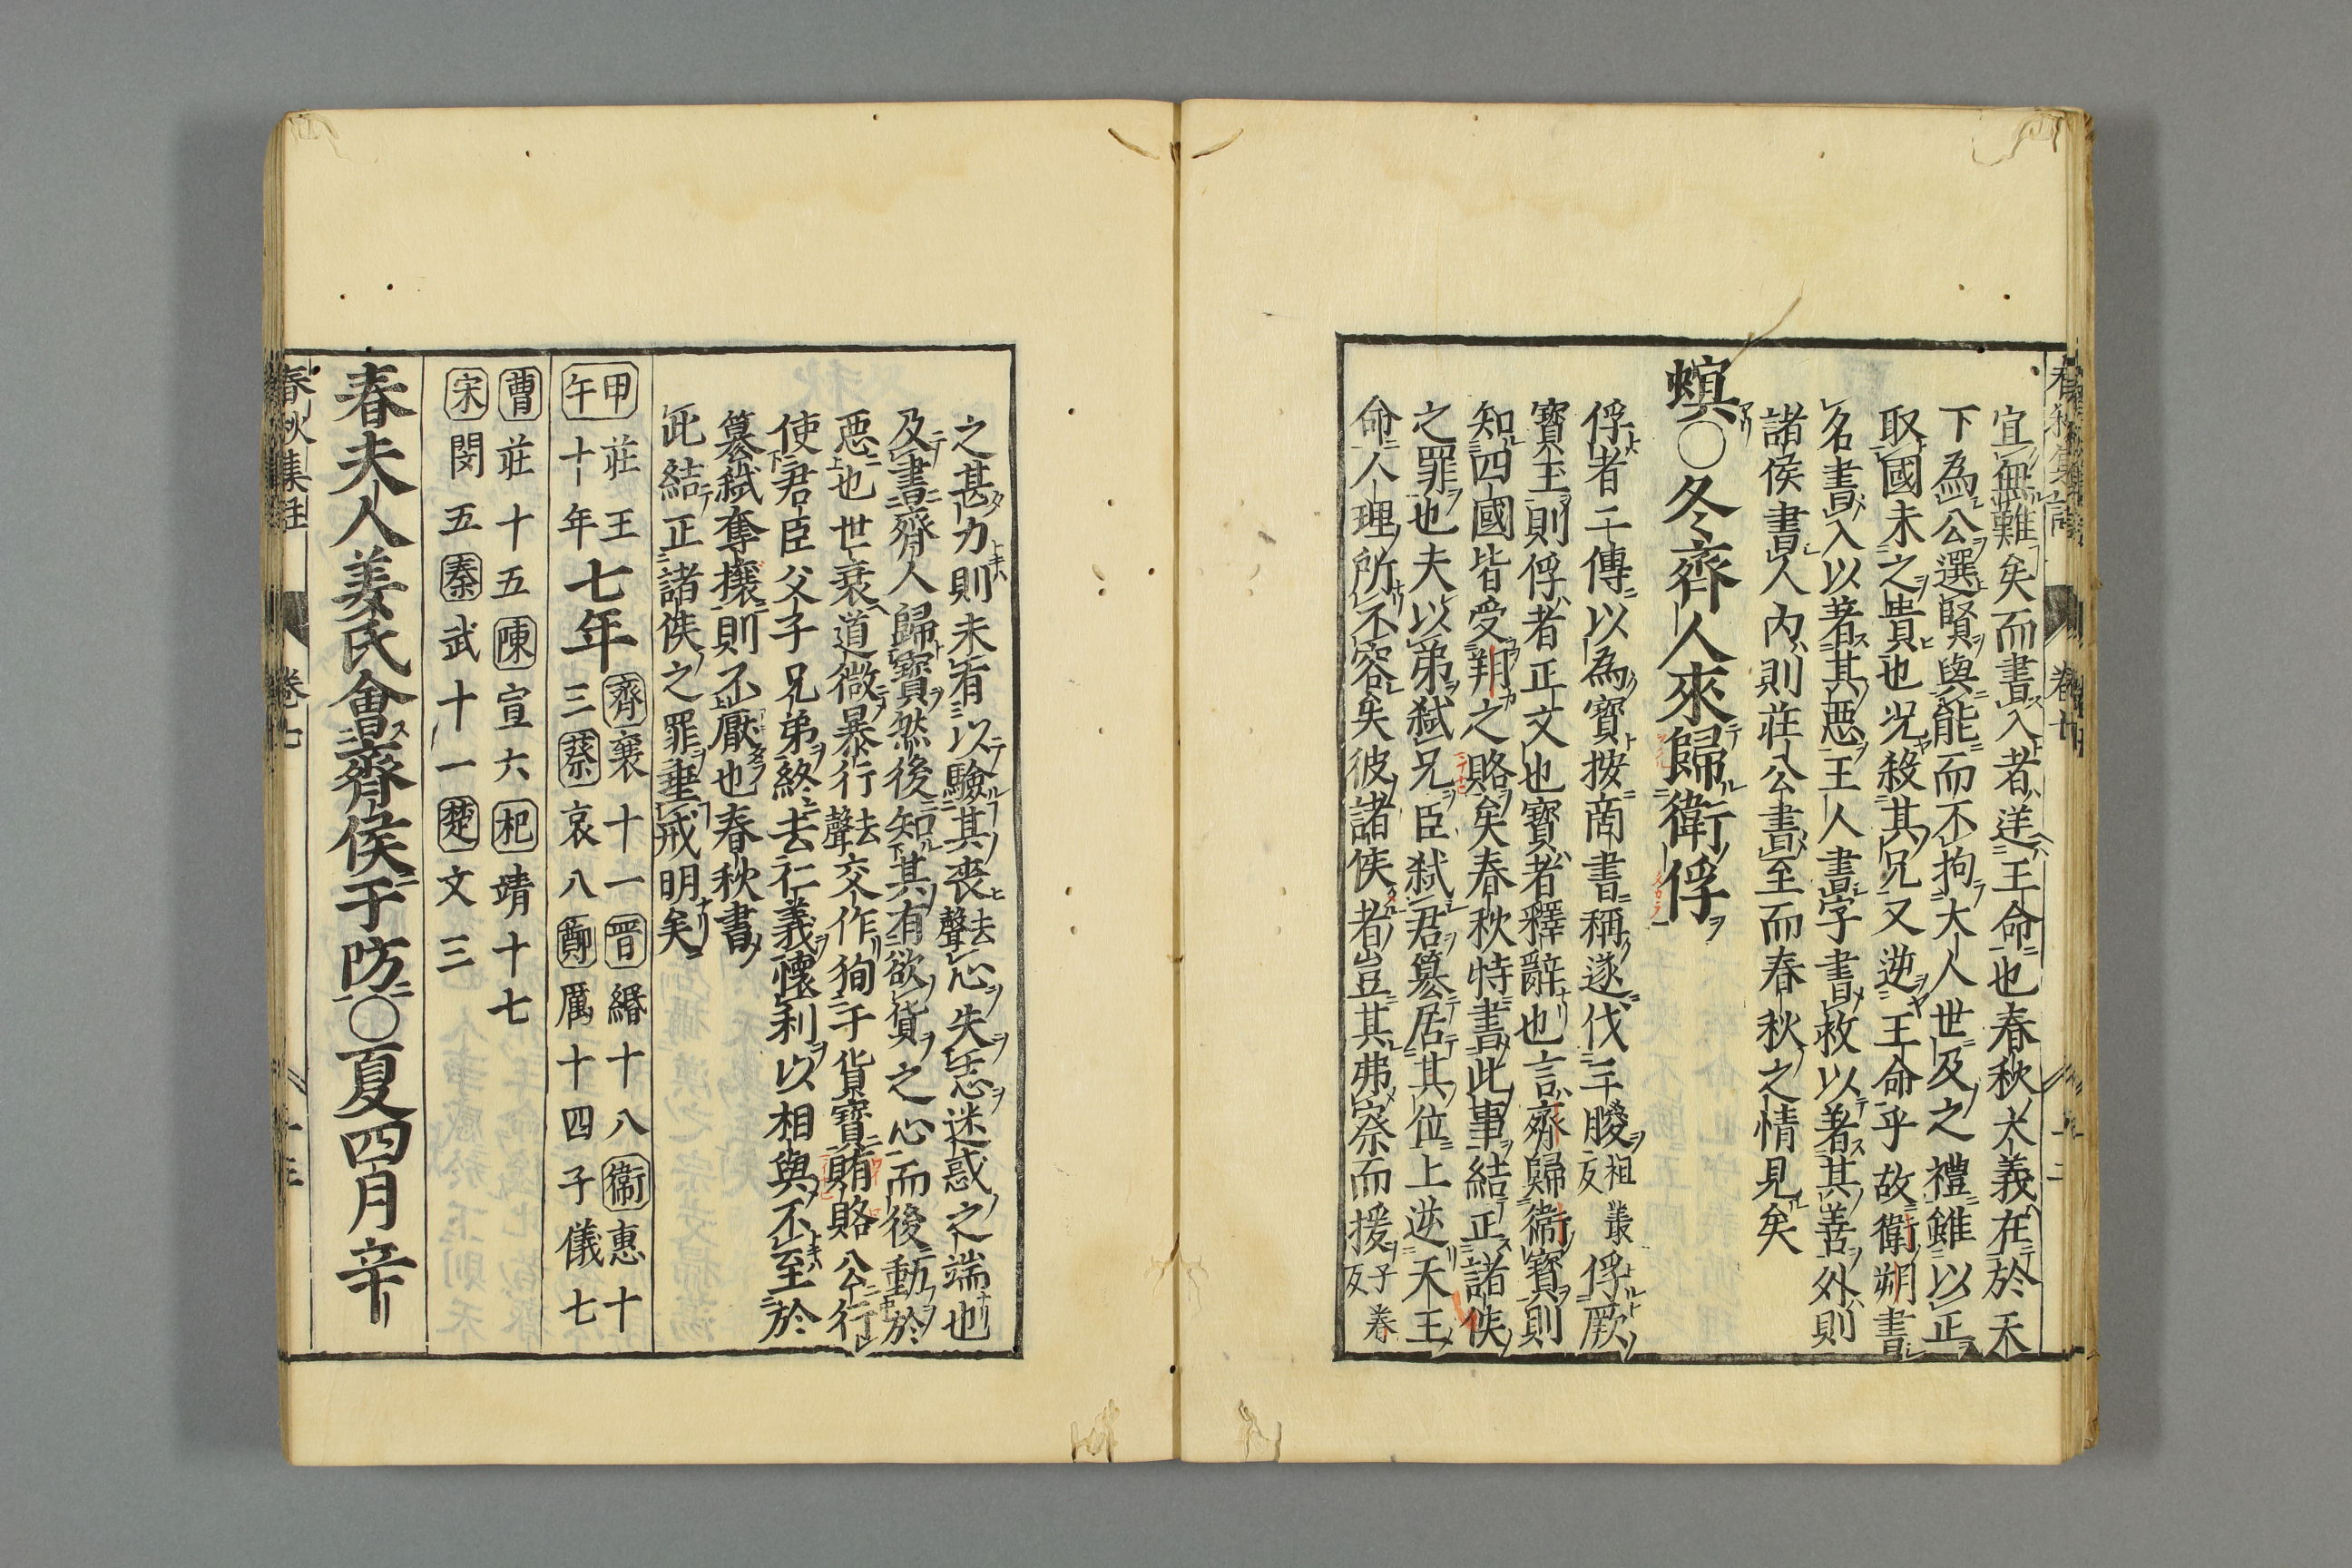 宜無難矣而書入者逆王命也春秋大義在於天
下為公選賢與能而不拘大人世及之禮雖以正
取國未之貴也况殺其兄又逆王命乎故衛朔書
名書入以著其惡王人書字書救以著其善外則
諸侯書人内則莊公書至而春秋之情見矣
螟○冬齊人來歸衛俘
俘者三傳以為寶按商書稱遂伐三朡祖叢反俘厥
寶玉則俘者正文也寶者釋辭也言齊歸衛寶則
知四國皆受朔之賂矣春秋特書此事結正諸侯
之罪也夫以弟弑兄臣弑君簒居其位上逆天王
命人理所不容矣彼諸侯者豈其弗察而援子眷反
之甚力則未有以驗其喪去聲心失志迷惑之端也
及書齊人歸寶然後知其有欲貨之心而後動於
惡也世衰道微暴行去聲交作徇于貨寶賄賂公行
使君臣父子兄弟終去仁義懷利以相與不至於
簒弑奪攘則不厭也春秋書
此結正諸侯之罪垂戒明矣
甲午莊王十年七年齊襄十一晉緡十八衛惠十三蔡哀八鄭厲十四子儀七
曹莊十五陳宣六杞靖十七
宋閔五秦武十一楚文三
春夫人姜氏會齊侯于防○夏四月辛
春秋集註 卷七